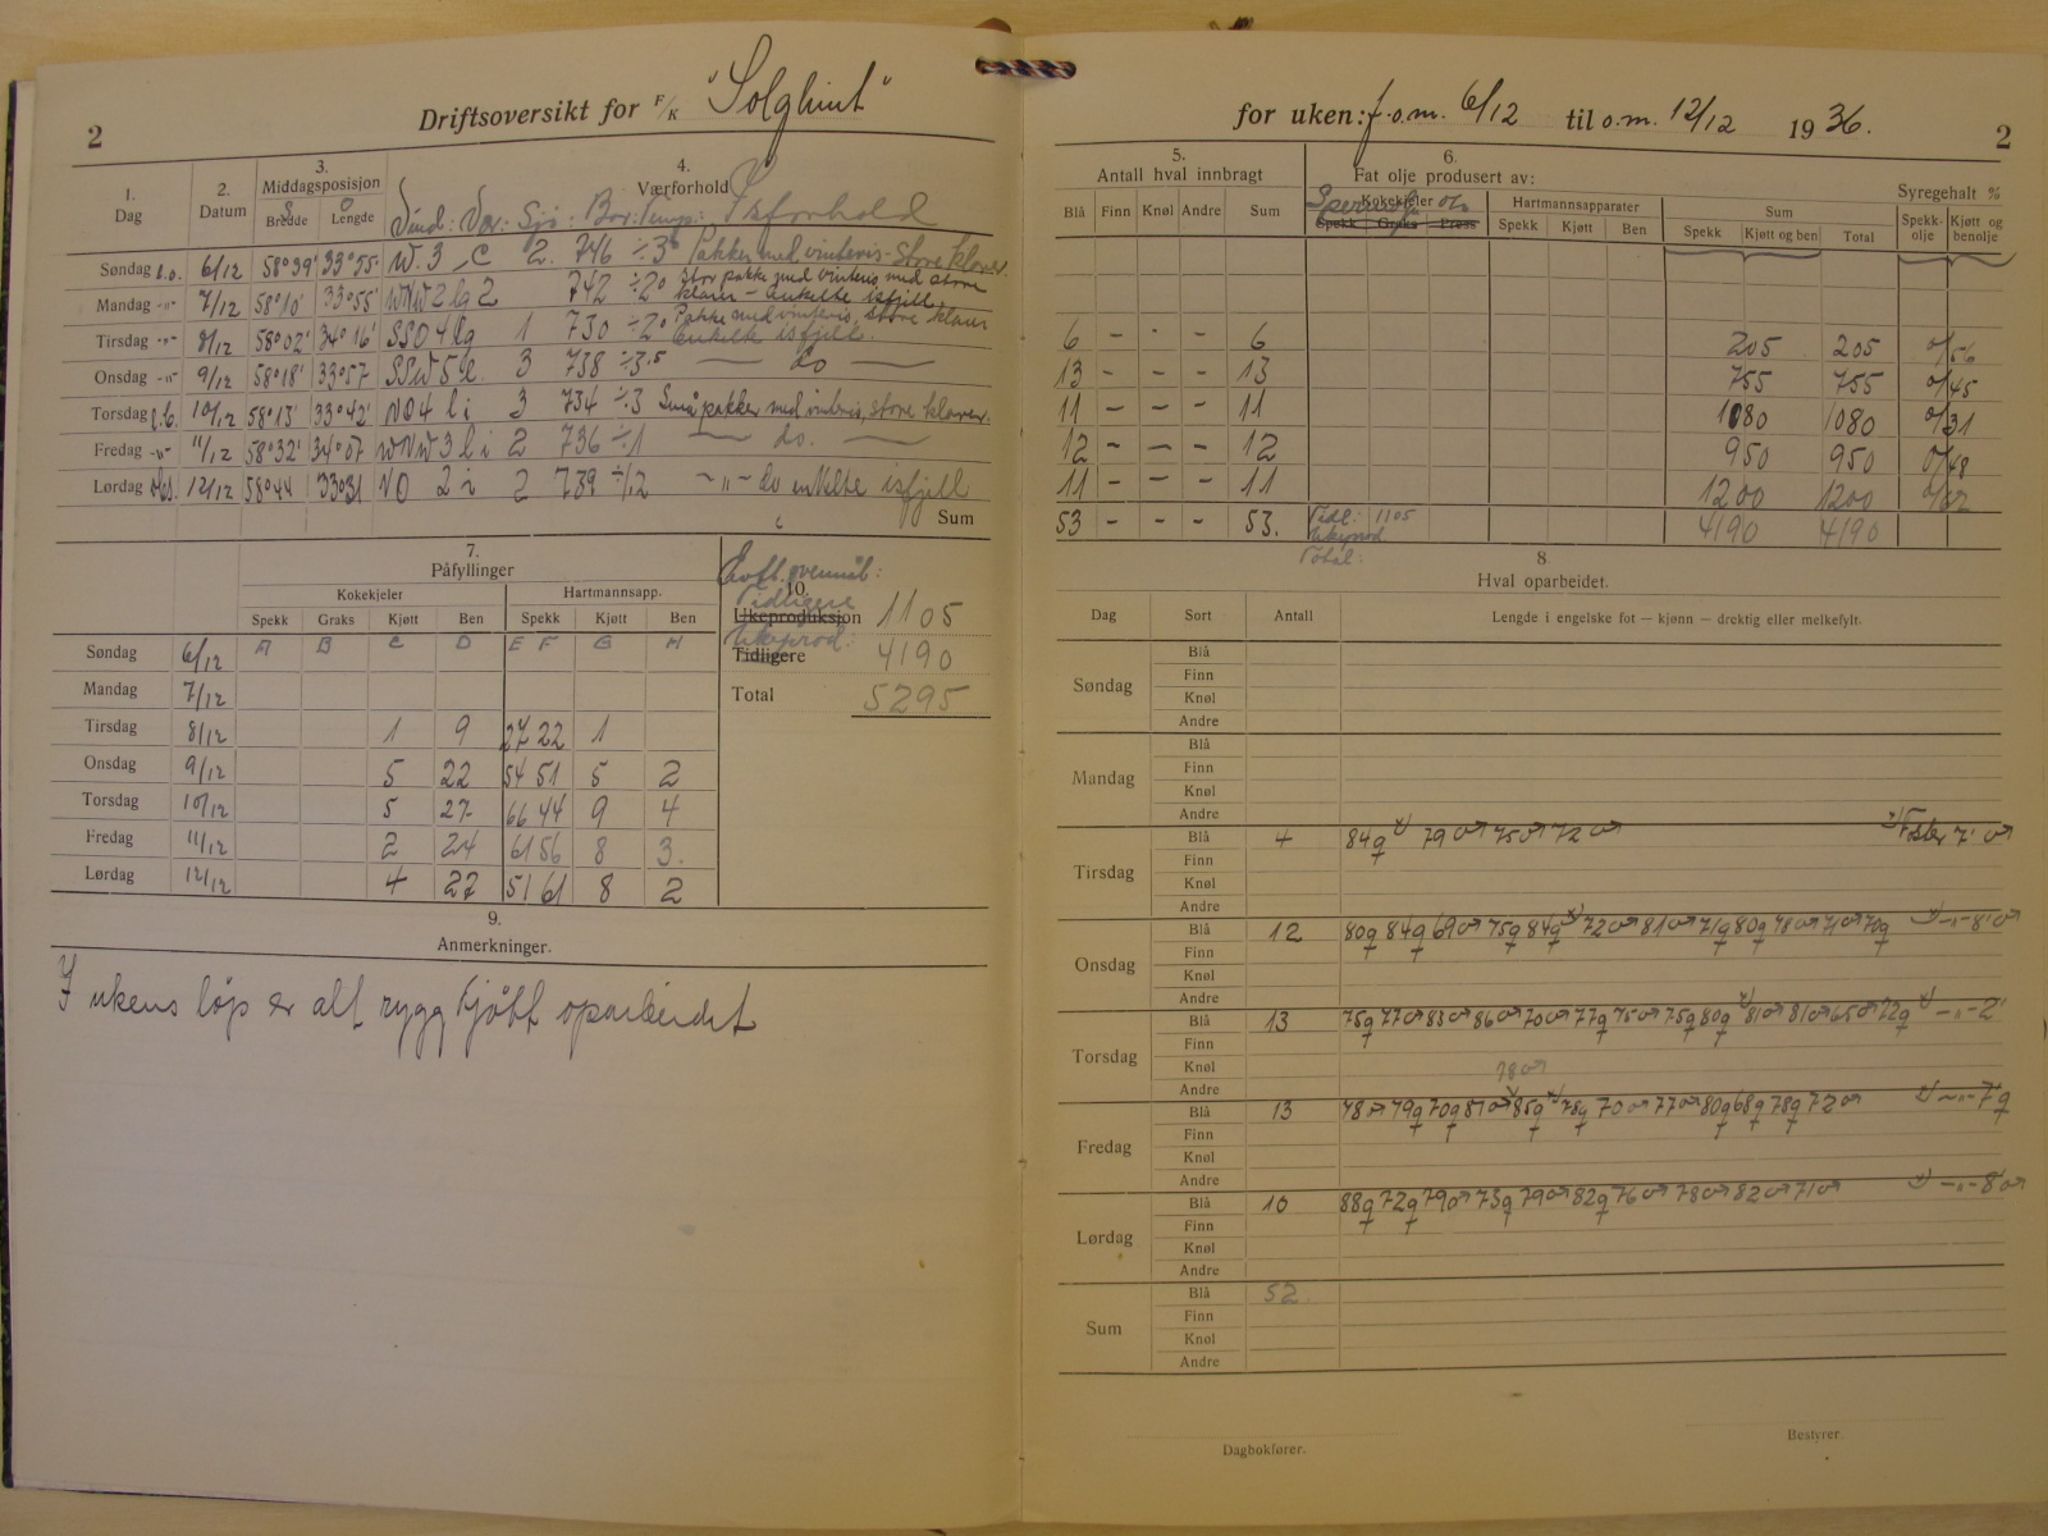 2
Driftsoversikt for F/K "Solglimt"
1.
Dag
2.
Datum
3.
Middagsposisjon
S O
Bredde Lengde
4.
Værforhold
Vind: Vær: Sjø: Bar: Temp: Isforhold
Søndag 6/12 58°39' 33°55' W. 3 C 2. 746 ÷3 Pakker med vinteris - store klarer.
Mandag -"- 7/12 58°10' 33°55' WNW 2 lg 2 742 ÷2° Stor pakke med vinteris med store
klarer - enkelte isfjell.
Tirsdag -"- 8/12 58°02' 34°16' SSO 4 lg 1 730 ÷2° Pakke med vinteris, store klarer
Enkelte isfjell.
Onsdag -"- 9/12 58°18' 33°57 SSW 5 3 738 ÷3.5 — do —
Torsdag 10/12 58°13' 33°42' NO 4 l i 3 734 ÷3 Små pakker med vinteris, store klarer.
Fredag -"- 11/12 58°32' 34°07 WNW 3 l i 2 736 ÷1 — do. —
Lørdag 12/12 58°44 33°31 NO 2 i 2 739 ÷1,2 -"- do enkelte isfjell
Sum
7.
Påfyllinger
Kokekjeler Hartmannsapp.
Spekk Graks Kjøtt Ben Spekk Kjøtt Ben
Søndag 6/12 A B C D E F G H
Mandag 7/12
Tirsdag 8/12 1 9 27 22 1
Onsdag 9/12 5 22 54 51 5 2
Torsdag 10/12 5 27 66 44 9 4
Fredag 11/12 2 24 61 56 8 3.
Lørdag 12/12 4 27 51 61 8 2
10.
Tidligere
Ukeproduksjon 1105
Ukeprod:
Tidligere 4190
Total 5295
9.
Anmerkninger.
I ukens løp er alt rygg kjøtt oparbeidet
for uken: f.o.m. 6/12 til o.m. 12/12 1936.
2
5.
Antall hval innbragt
Blå Finn Knøl Andre Sum
6.
Fat olje produsert av:
Kokekjeler
Spekk Graks Press
Hartmannsapparater
Spekk Kjøtt Ben
Sum
Spekk Kjøtt og ben Total
Syregehalt %
Spekk-olje Kjøtt og benolje
6 – - – 6 205 205 0/56
13 – – – 13 755 755 0/45
11 – – – 11 1080 1080 0/31
12 – – – 12 950 950 0/48
11 – – – 11 1200 1200
53 – – – 53. Tidl: 1105 4190 4190
Ukeprod.
Total:
8.
Hval oparbeidet.
Dag Sort Antall Lengde i engelske fot — kjønn — drektig eller melkefylt.
Søndag
Blå
Finn
Knøl
Andre
Mandag
Blå
Finn
Knøl
Andre
Tirsdag
Blå 4 84♀ x) 79♂ 75♂ 72♂ x) Foster 7' ♂
Finn
Knøl
Andre
Onsdag
Blå 12 80♀ 84♀ 69♂ 75♀ 84♀ x) 72♂ 81♂ 71♀ 80♀ 78♂ 71♂ 70♀ x) -"- 8' ♂
Finn
Knøl
Andre
Torsdag
Blå 13 75♀ 77♂ 83♂ 86♂ 70♂ 77♀ 75♂ 75♀ 80♀ x) 81♂ 81♂ 65♂ 72♀ x) -"- 2'
Finn
Knøl
Andre
78♂
Fredag
Blå 13 78♂ 79♀ 70♀ 81♂ 85♀ x) 78♀ 70♂ 77♂ 80♀ 68♀ 78♀ 72♂ x) -"- 7' ♀
Finn
Knøl
Andre
Lørdag
Blå 10 88♀ 72♀ 79♂ 73♀ 79♂ 82♀ 76♂ 78♂ 82♂ 71♂ x) -"- 8' ♂
Finn
Knøl
Andre
Sum
Blå 52.
Finn
Knøl
Andre
Dagbokfører.
Bestyrer.